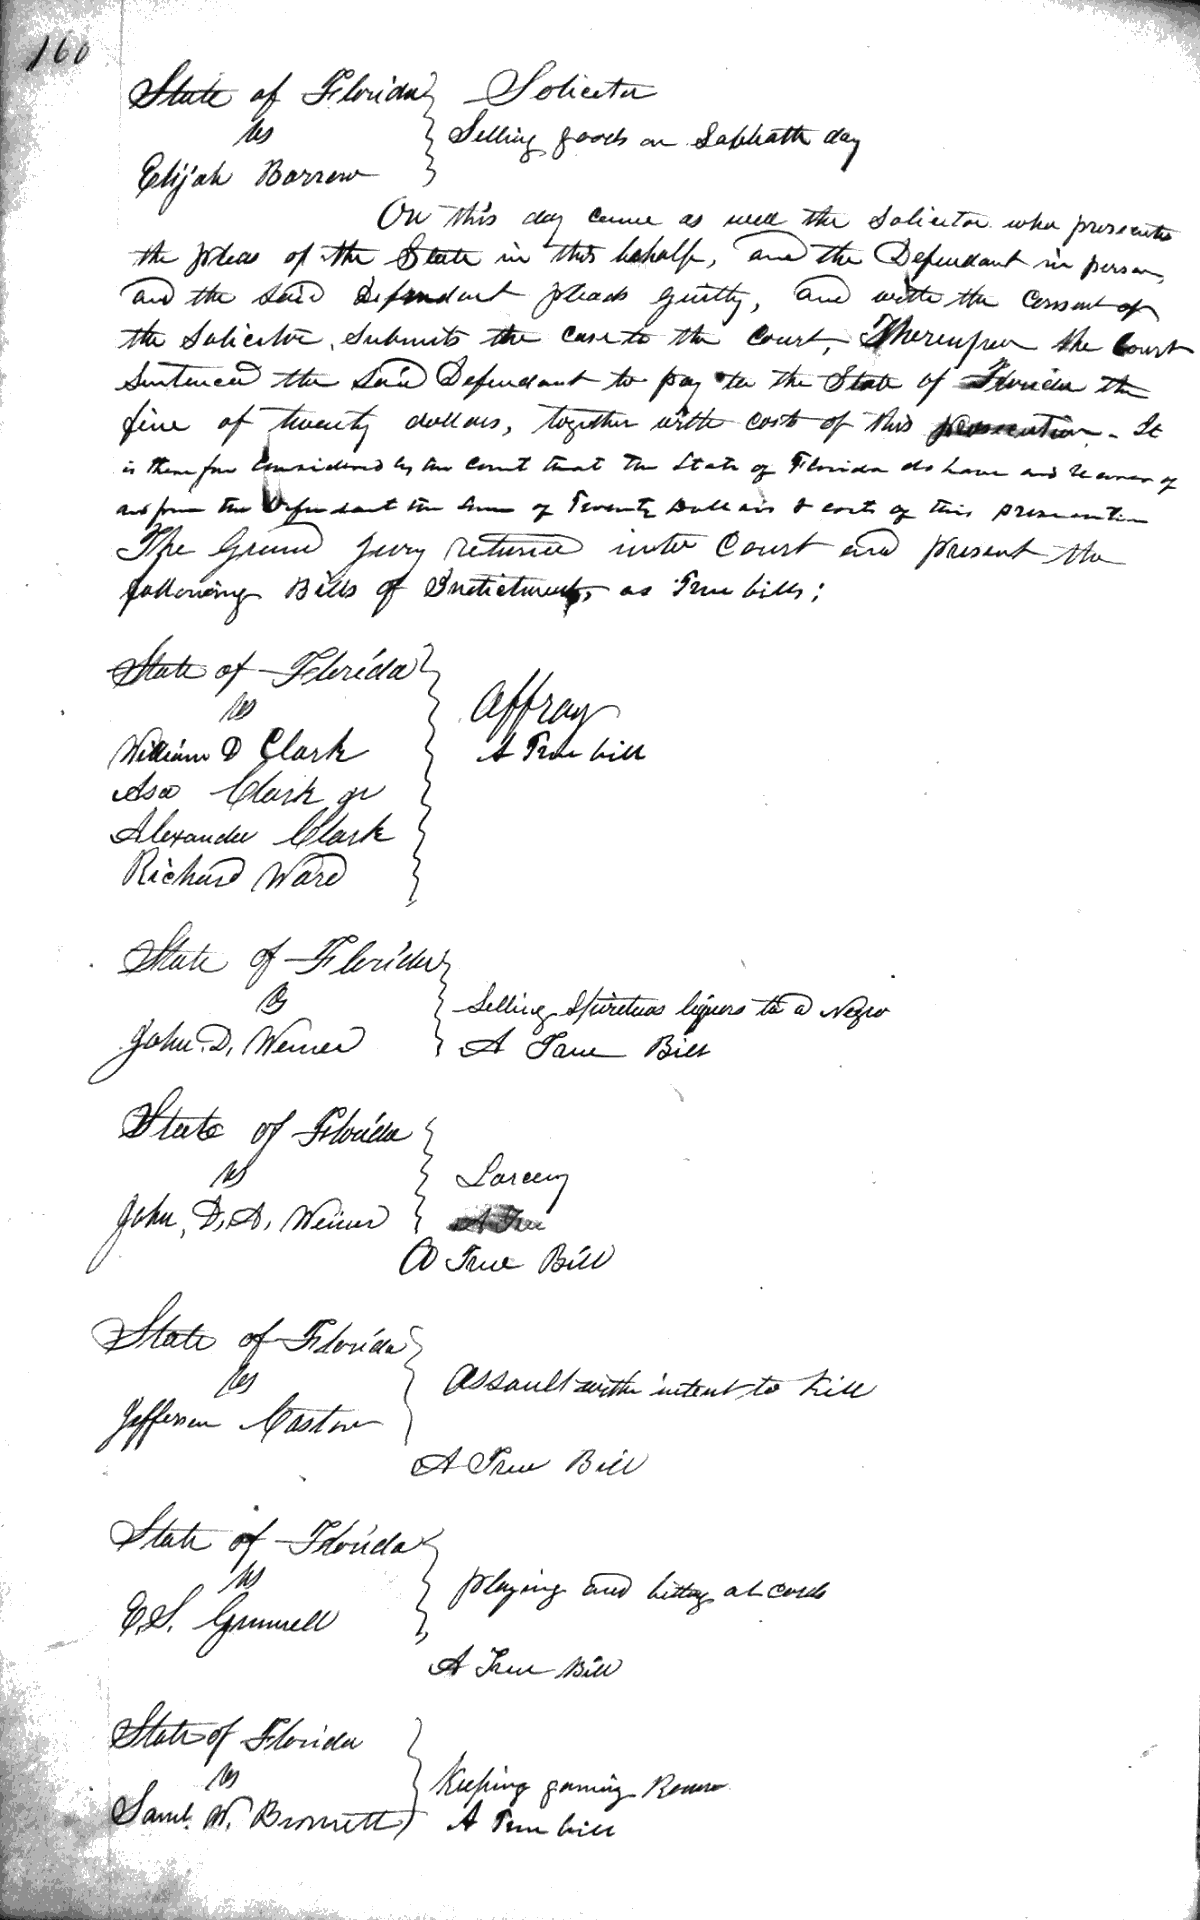 160
State of Florida Solicitor
vs
Selling goods on Sabbath day
Elijah Barrow
On this day came as well the Solicitor who prosecutes
the pleas of the State in this behalf, and the Defendant in person,
and the said Defendant pleads guilty, and with the consent of
the Solicitor, submits the case to the Court, Thereupon the Court
sentenced the said Defendant to pay to the State of Florida the
fine of twenty dollars, together with costs of this prosecution. It
is therefore considered by the Court that the State of Florida do have and recover of
and from the Defendant the sum of Twenty Dollars & costs of this prosecution
The Grand Jury returned into Court and present the
following Bills of Indictment, as True bills;
State of Florida
vs
Affray
William D Clark
A True bill
Asa Clark Jr
Alexander Clark
Richard Ward
State of Florida
vs
Selling Spiretuos liquors to a Negro
John. D,
A True Bill
State of Florida
vs
Larceny
John, D, A,
A True
A True Bill
State of Florida
vs
Assault with intent to kill
Jefferson
A True Bill
State of Florida
vs
playing and betting at cards
E. S.
A True Bill
State of Florida
vs
Keeping gaming Room
Saml. W.
A True bill